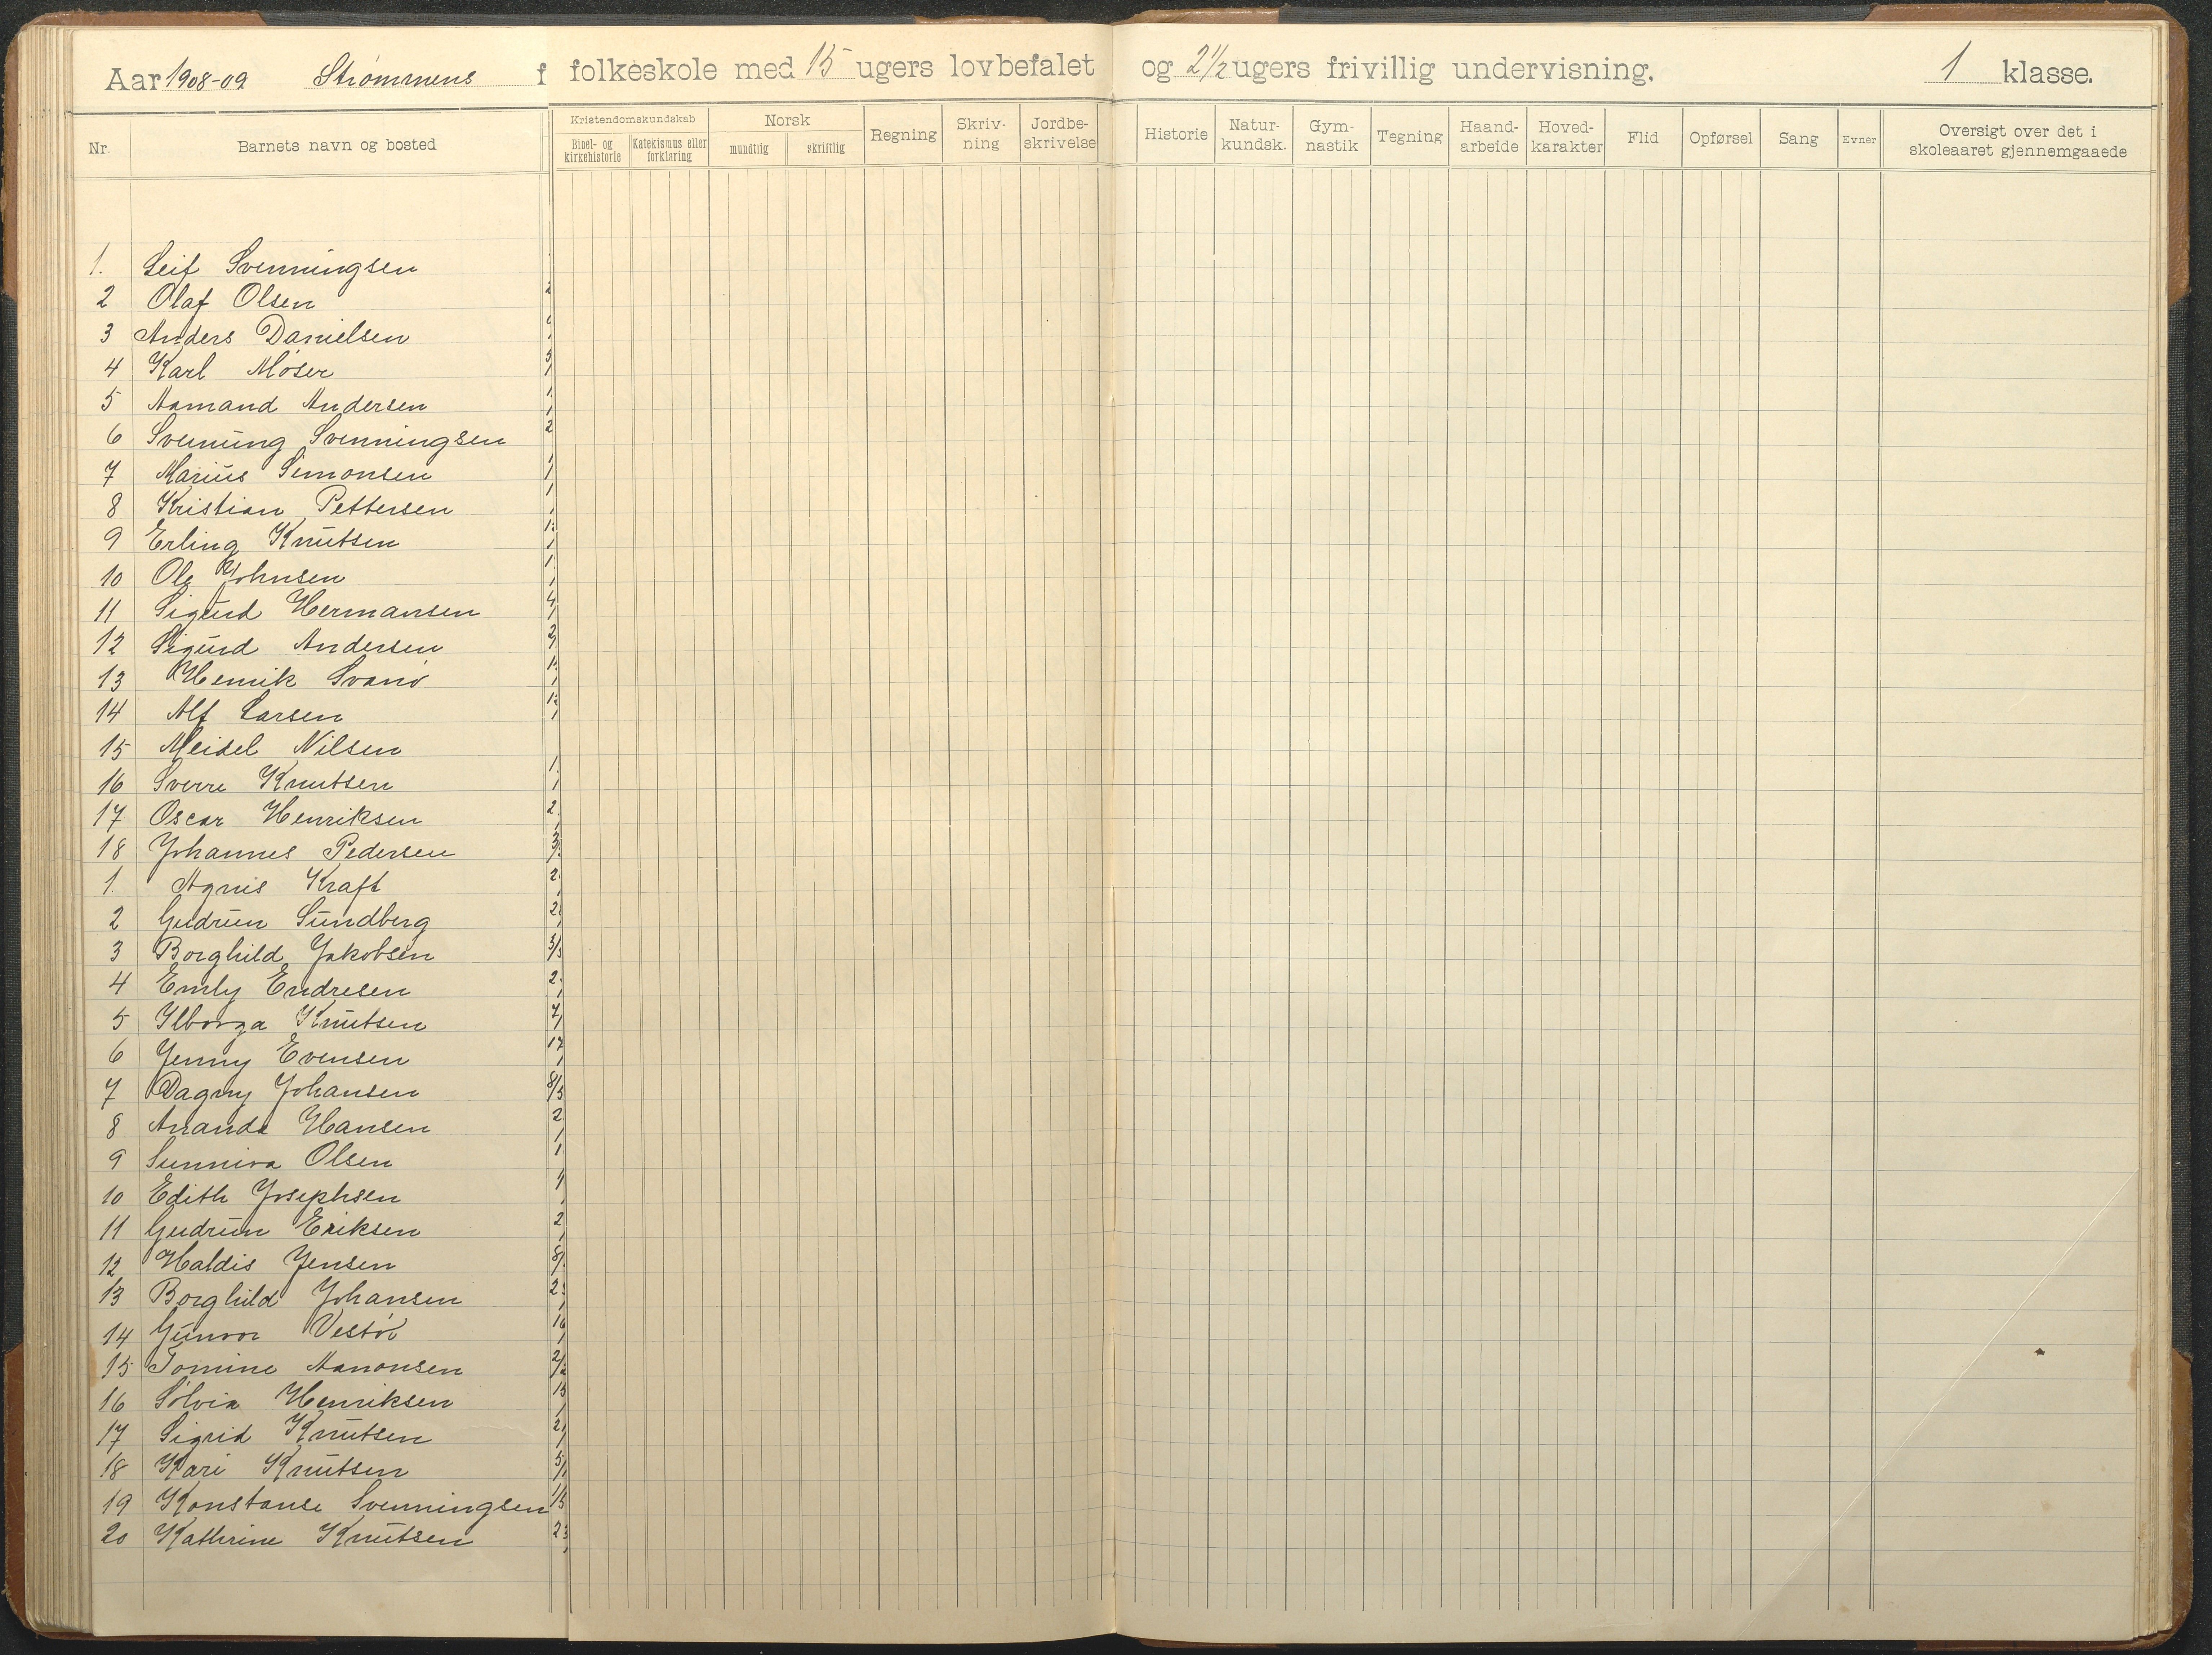 Aar 1908-09 Strømmens f folkeskole med 15 ugers lovbefalet og 2 1/2 ugers frivillig undervisning. 1 klasse.
Nr. Barnets navn og bosted Kristendomskundskab Bibel- og kirkehistorie Katekismus eller forklaring Norsk mundtlig skriftlig Regning Skriv-ning Jordbe-skrivelse Historie Natur-kundsk. Gym-nastik Tegning Haand-arbeide Hoved-karakter Flid Opførsel Sang Evner Oversigt over det i skoleaaret gjennemgaaede
1. Leif Svenningsen
2 Olaf Olsen
3 Anders Danielsen
4 Karl Moser
5 Aamand Andersen
6 Svenung Svenningsen
7 Marius Simonsen
8 Kristian Pettersen
9 Erling Knutsen
10 Ole Johnsen
11 Sigurd Hermansen
12 Sigurd Andersen
13 Henrik Svanø
14 Alf Larsen
15 Meidel Nilsen
16 Sverre Knutsen
17 Oscar Henriksen
18 Johannes Pedersen
1. Agnis Kraft
2 Gudrun Sundberg
3 Borghild Jakobsen
4 Emly Endresen
5 Ilborga Knutsen
6 Jenny Evensen
7 Dagny Johansen
8 Ananda Hansen
9 Sunniva Olsen
10 Edith Josephsen
11 Gudrun Eriksen
12 Haldis Jensen
13 Borghild Johansen
14 Gunvor Vestøl
15 Tomine Aanonsen
16 Solvia Henriksen
17 Sigrid Knutsen
18 Kari Knutsen
19 Konstanse Svenningsen
20 Kathrine Knutsen